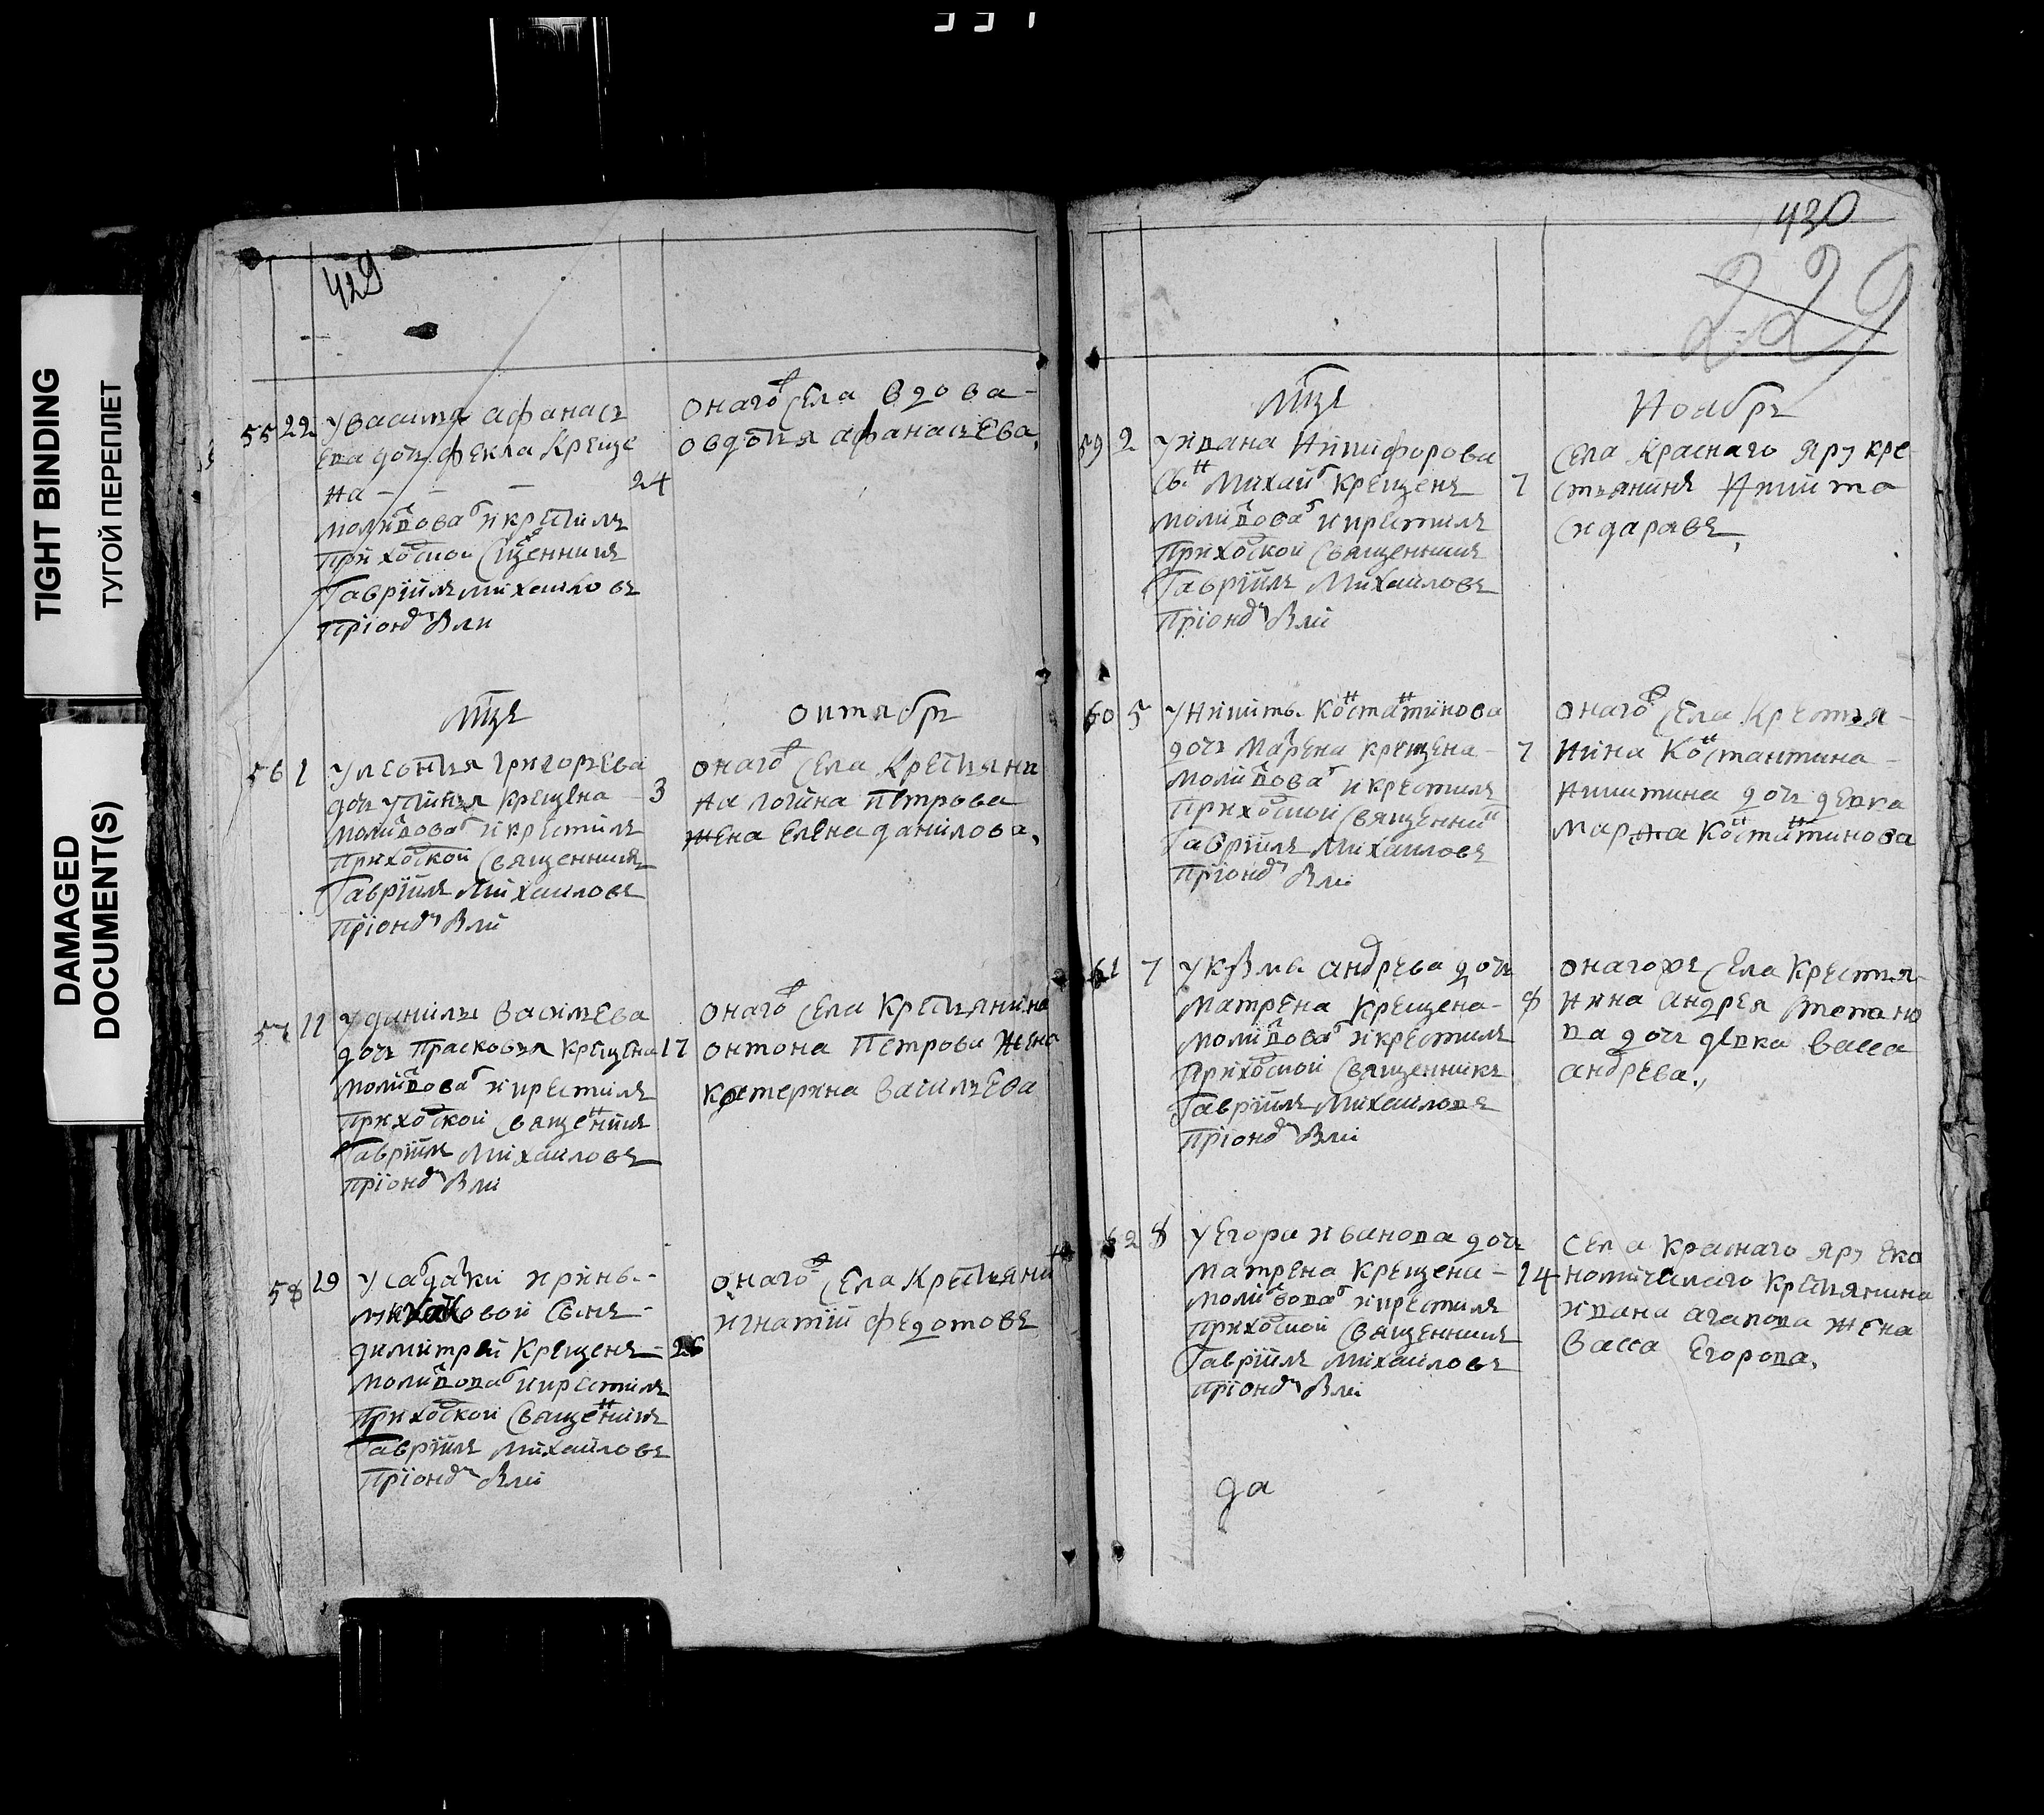 TIGHT BINDING
ТУГОЙ ПЕРЕПЛЕТ
DAMAGED
DOCUMENT(S)
429
55 22 У Васил҄я Афанась
ева дочь Фекла креще
на – – – 24
молитвовал и крестилъ
Приходской Священникъ
Гавріилъ Михаиловъ
При онд Зли
онагож Села вдова
Овдотья Афанасьева,
Мцъ Октябрь
56 1 У Леонтья Григорьева
дочь Устинья крещена 3
молитвовал и крестилъ
Приходской Священникъ
Гавріилъ Михаиловъ
онагож Села Крестьяни
на Логина Петрова
жена Елена Данилова,
57 11 У Данилы Васильева
дочь Прасковья крещена 17
молитвовал и крестилъ
Приходской Священникъ
Гавріилъ Михаиловъ
онагож Села Крестьянина
Онтона Петрова жена
Катерина Васильева
58 19 У Салдатки Ирины
сынъ
Димитрей крещенъ – 26
молитвовал и крестилъ
Приходской Священникъ
Гавріилъ Михаиловъ
онагож Села Крестьянин
Игнатій Федотовъ
430
229
Мцъ Ноябрь
59 2 У Ивана Никифорова
Снъ Михаил крещенъ 7
молитвовал и крестилъ
Приходской Священникъ
Гавріилъ Михаиловъ
Села Краснаго Яру кре
стьянинъ Никита
Сидаравъ,
60 5 У Никиты Костантинова
дочь Матрена крещена – 7
молитвовал и крестилъ
Приходской Священник
Гавріилъ Михаиловъ
онагож Села Крестья
нина Костантина
Никитина дочь девка
Марна Костантинова
61 7 У Кузмы Андрева дочь
Матрена крещена – 8
молитвовал и крестилъ
Приходской Священникъ
Гавріилъ Михаиловъ
онагоже Села Крестья
нина Андрея Степано
ва дочь девка Васса
Андрева,
62 8 У Егора Иванова дочь
Матрена крещена – 14
молитвовал и крестилъ
Приходской Священникъ
Гавріилъ Михаиловъ
Села Краснаго Яру Еко
номическаго Крестьянина
Ивана Агапова жена
Васса Егорова,
да